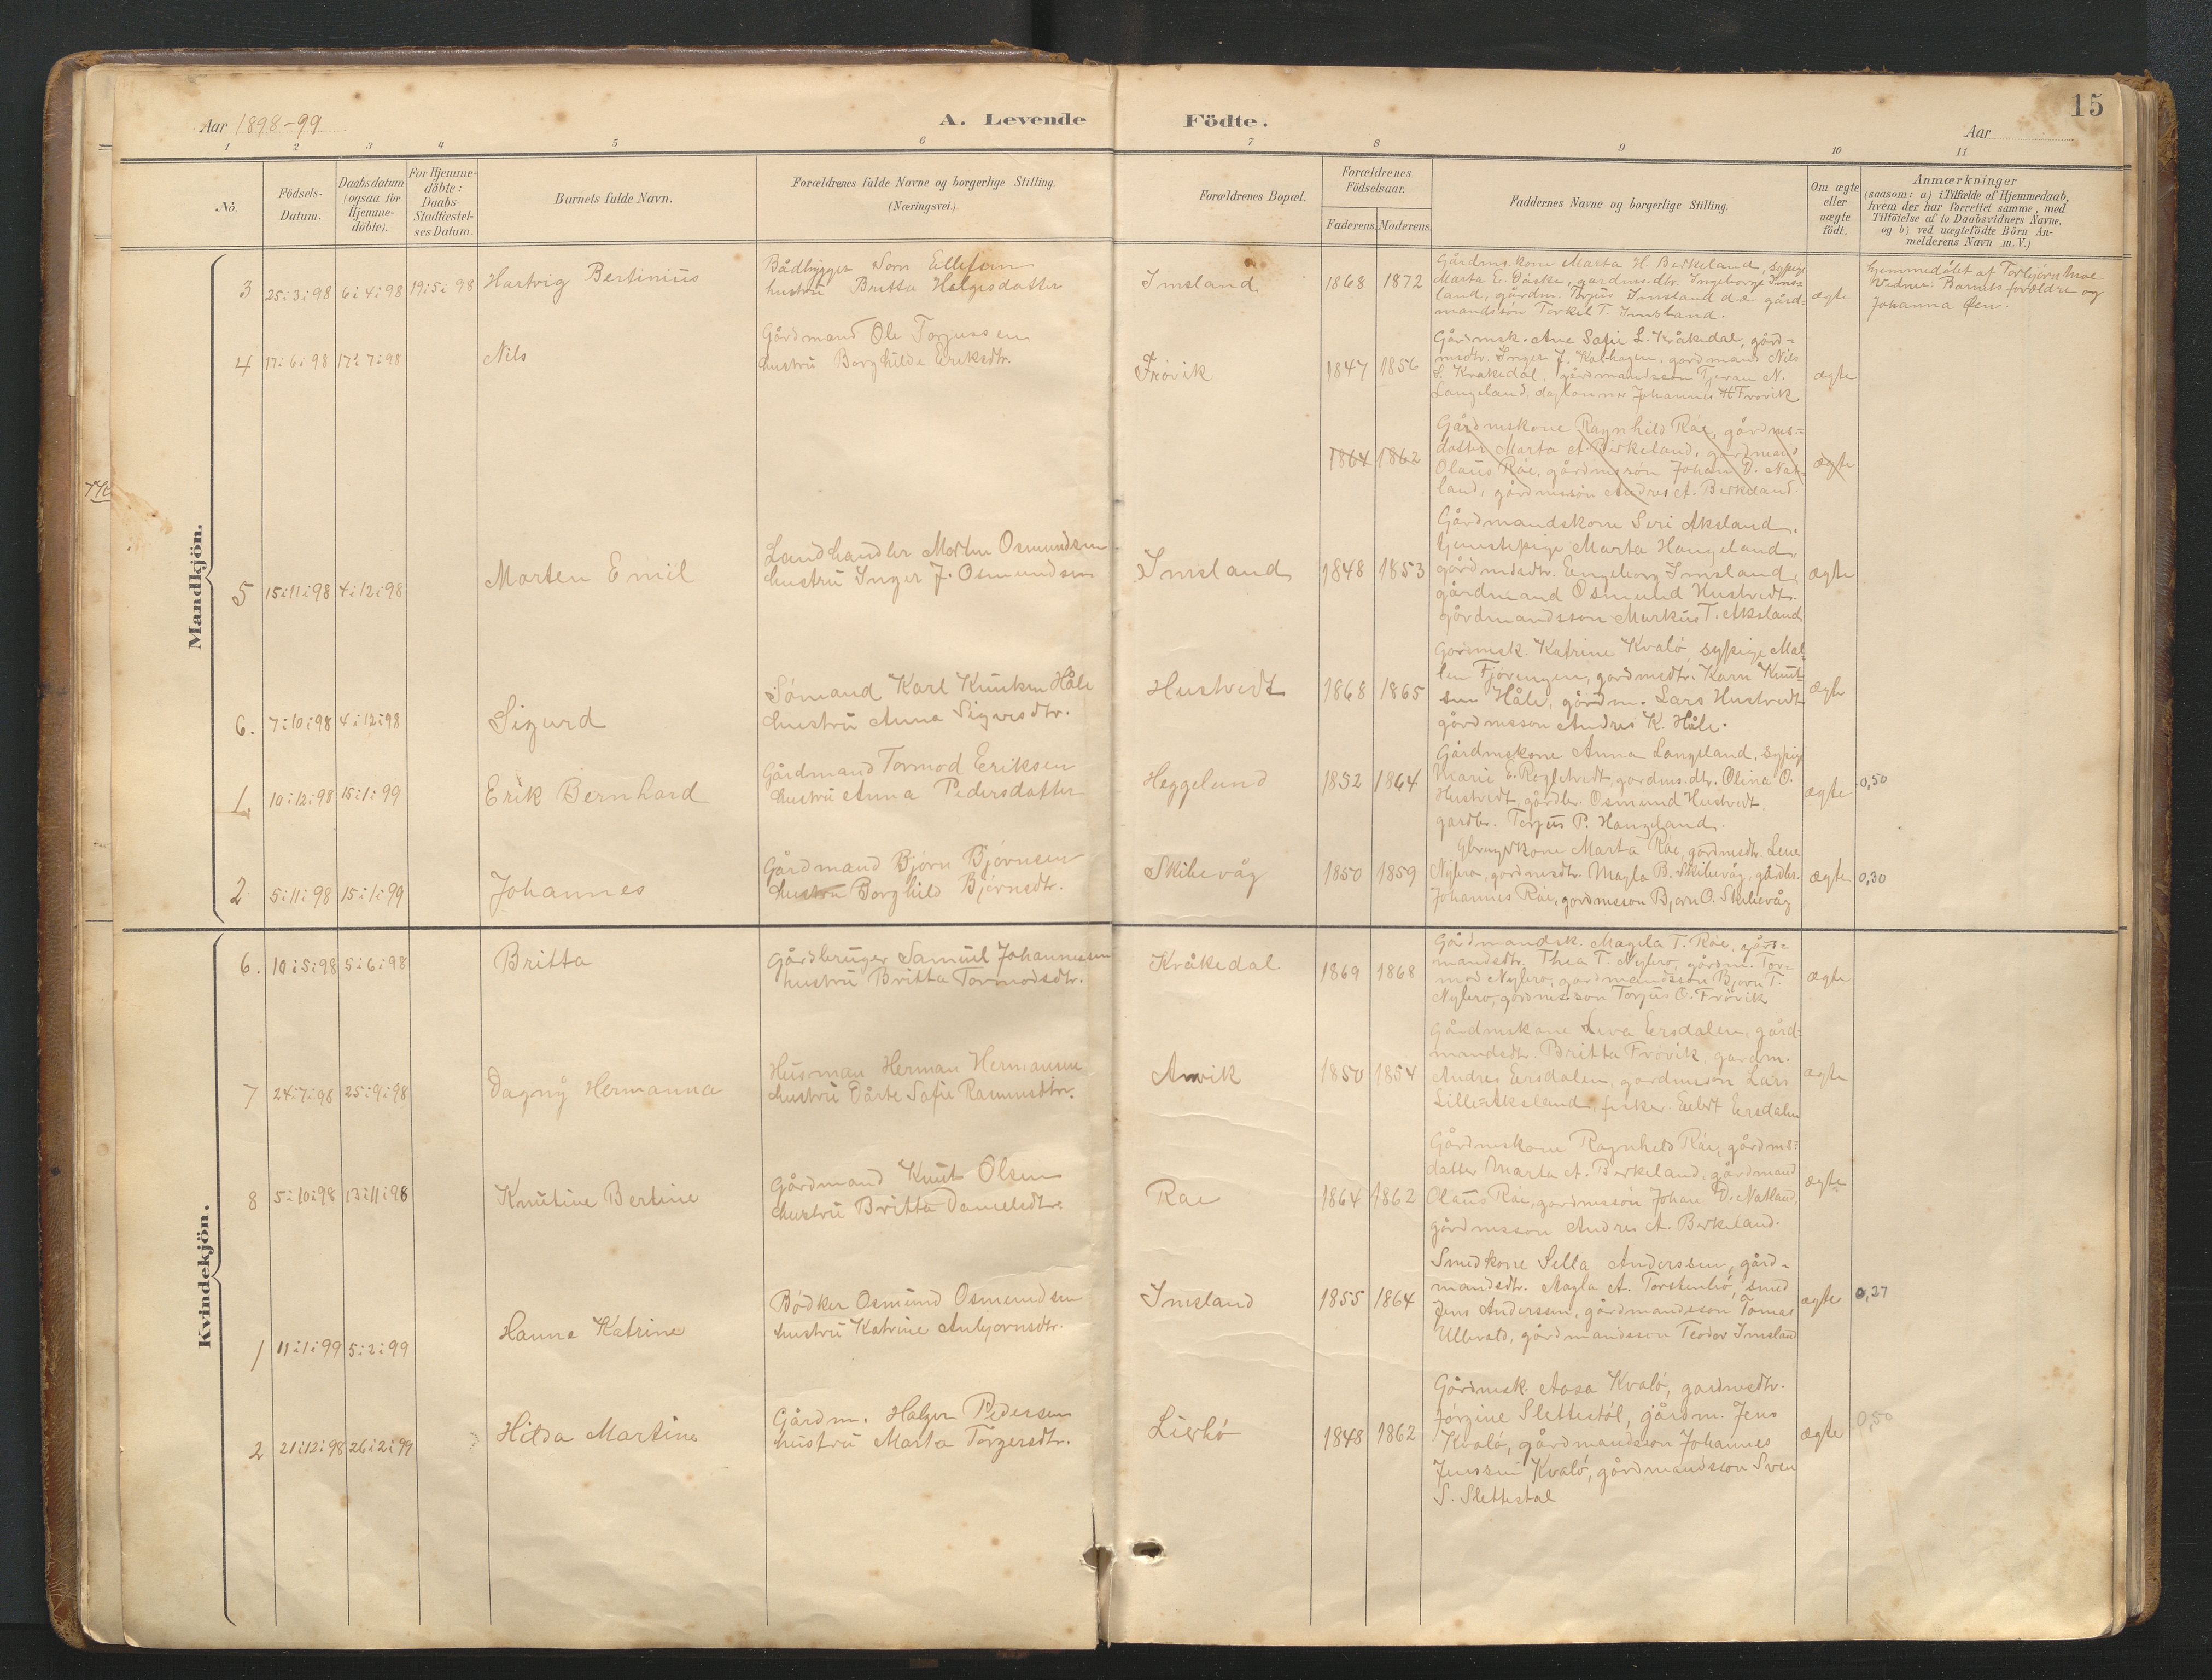 15
Aar 1898-99
A. Levende Födte.
Aar
1 2 3 4 5 6 7 8 9 10 11
No.
Födsels-
Datum.
Daabsdatum
(ogsaa for
Hjemme-
döbte).
For Hjemme-
döbte:
Daabs-
Stadfæstel-
ses Datum.
Barnets fulde Navn.
Forældrenes fulde Navne og borgerlige Stilling.
(Næringsvei.)
Forældrenes Bopæl.
Forældrenes
Födselsaar.
Faderens. Moderens.
Faddernes Navne og borgerlige Stilling.
Om ægte
eller
uægte
födt.
Anmærkninger
(saasom: a) i Tilfælde af Hjemmedaab,
hvem der har forrettet samme, med
Tilföielse af to Daabsvidners Navne.
og b) ved uægtefödte Börn An-
melderens Navn m.V.)
Mandkjön.
3 25:3:98 6:4:98 19:5:98 Hartvig Bertinius
Bådbygger Sorn Ellefsen
hustru Britta Helgesdatter
Imsland 1868 1872
Gårdmskone Marta H. Birkeland, sypige
Marta E. gardms.dtr. Ingeborg Ims=
land, gårdm. Torjus Imsland d.e. gård
mandssön Torkel T. Imsland.
ægte
hjemmedöbt af Torbjörn Moe
Vidne: Barnets forældre og
Johanna Öen.
4 17:6:98 17:7:98 Nils
Gårdmand Ole Torjussen
hustru Borghilde Eriksdtr.
Frövik 1847 1856
Gårdmsk. Ane Safie L. Kråkedal, gård=
msdtr. Inger J. Kalhagen, gardmand Nils
S. Kråkedal, gårdmandsson Tjeran N.
Langeland, daglönner Johannes H Frovik
ægte
1864 1862
Gårdmskone Ragnhild Råe, gårdms=
datter Marta A. Birkeland, gardmand
Olaus Råe, gårdmssön Johan D. Nat
land, gårdmssön Andres A. Birkeland.
ægte
5 15:11:98 4:12:98 Morten Emil
Landhandler Morten Osmundsen
hustru Inger J. Osmundsen
Imsland 1848 1853
Gårdmandskone Seri Aksland,
tjenestepige Marta Haugeland
gårdmsdtr. Engeborg Imsland,
gårdmand Osmund Hustvedt.
gårdmandsson Markus T. Aksland
ægte
6. 7:10:98 4:12:98 Sigurd
Sömand Karl Knutsen Håle
hustru Anna Sigvesdtr.
Hustvedt 1868 1865
Gårdmsk. Katrine Kvalö, sypige Mal
len Fjövengen, gardmsdtr. Karn Knut
sen Håle, gårdm. Lars Hustvedt
gårdmsson Andres K. Håle.
ægte
1 10:12:98 15:1:99 Erik Bernhard
Gårdmand Tormod Eriksen
hustru Anna Pedersdatter
Heggelund 1852 1864
Gårdmskone Anna Langeland, sypige
Marie E. gardms.dtr. Olina O.
Hustvedt, gårdbr. Osmund Hustvedt,
gardbr. Torjus P. Haugeland.
ægte 0,50
2 5:11:98 15:1:99 Johannes
Gårdmand Björn Björnsen
hustru Borghild Björnsdtr.
Skibevåg 1850 1859
Gbrugerkone Marta Råe, gårdmsdtr. Lene
Nybro, gordmsdtr. Magla B. Skibevåg, gårdbr.
Johannes Råe, gordmsson Bjørn O. Skibevåg
ægte 0,30
Kvindekjön.
6. 10:5:98 5:6:98 Britta
Gårdbruger Samuel Johannesen
hustru Britta Tormodsdtr.
Kråkedal 1869 1868
Gårdmandsk. Magela T. Råe, gård=
mandsdtr. Thea T. Nybro, gårdm. Tor=
mod Nybro, gardmandssön Bjorn T.
Nybro, gordmsson Torjus O. Frövik
ægte
7 24:7:98 25:9:98 Dagny Hermanna
Husman Herman Hermanne
hustru Dårte Safie Rasmusdtr.
Anvik 1850 1854
Gårdmskone Liva Ersdalen, gård=
mandsdtr. Britta Frövik, gardm.
Andres Ersdalen, gardmsson Lars
Lille=Aksland, fisker. Eilert Ersdalen
ægte
8 5:10:98 13:11:98 Knutine Bertine
Gårdmand Knut Olsen
hustru Britta Danieledtr.
Rae 1864 1862
Gårdmskone Ragnhild Råe, gårdms=
datter Marta A. Birkeland, gårdmand
Olaus Råe, gardmssön Johan D. Natland,
gårdmsson Andres A. Birkeland.
ægte
1 11:1:99 5:2:99 Hanne Katrine
Bödker Osmund Osmundsen
hustru Katrine Anbjornsdtr.
Imsland 1855 1864
Smedkone Sella Anderssen, gård=
mandsdtr. Magla A. Torstenbö, smed
Jens Anderssen, gårdmandsson Tomas
Ullevald, gårdmandsson Teodor Imsland
ægte 0,27
2 21:12:98 26:2:99 Hilda Martine
Gårdm. Halgen Pedersen
hustru Marta Torgersdtr.
Lierbö 1848 1862
Gårdmsk. Aasa Kvalö, gardmsdtr.
Jörgine Slettestöl, gårdm. Jens
Kvalö, gårdmandsson Johannes
Jenssen Kvalö, gårdmandsson Sven
S. Slettestøl
ægte 0,50